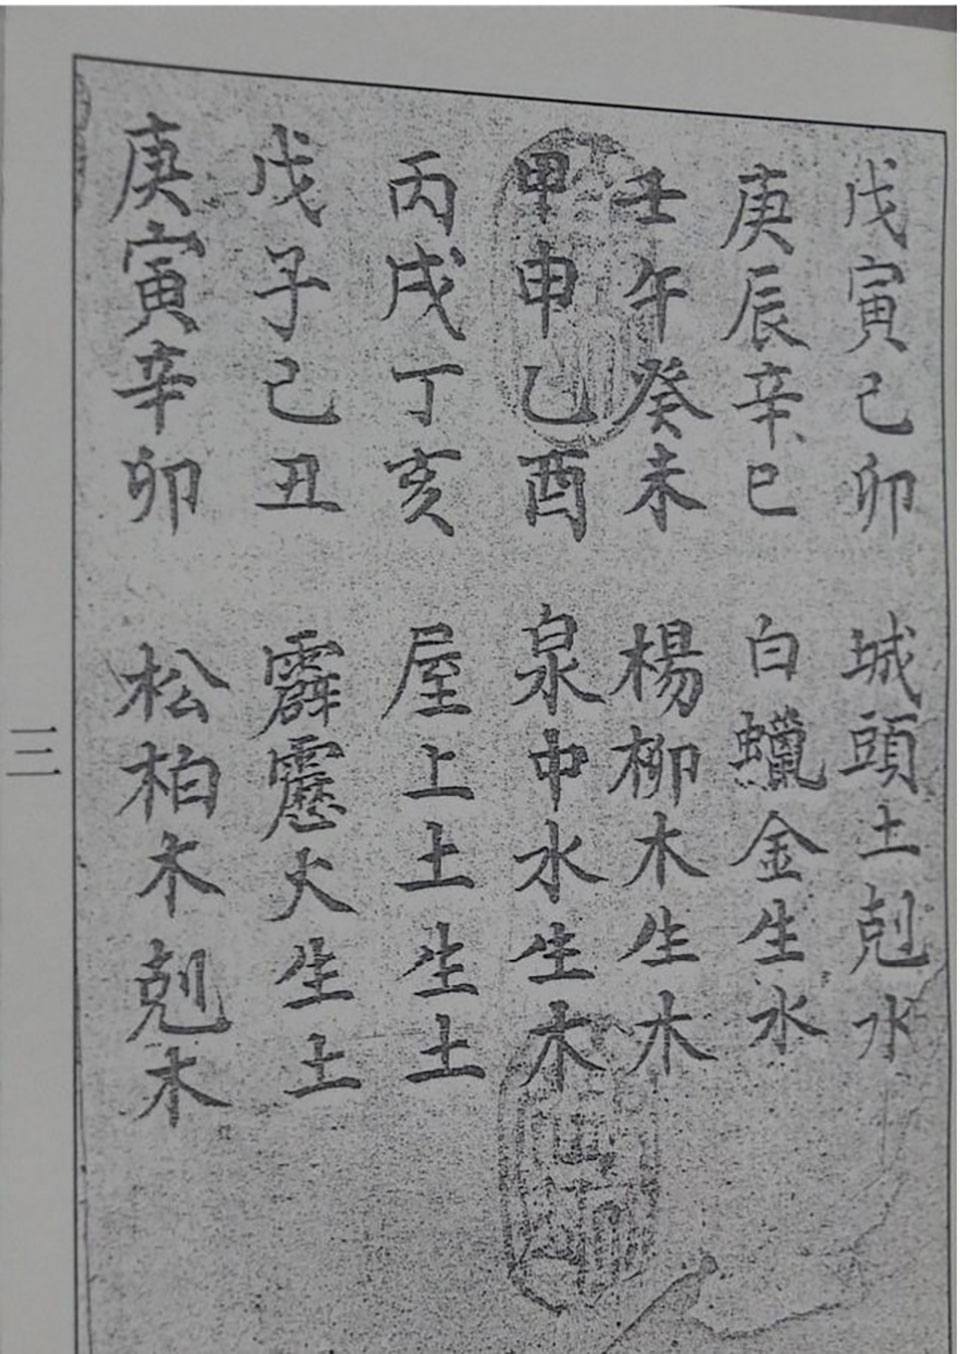 戊寅己卯　城頭土剋水
庚辰辛巳　白蠟金生水
壬午癸未　楊柳木生木
甲申乙酉　泉中水生木
丙戌丁亥　屋上土生土
戊子己丑　霹靂火生土
庚寅辛卯　松柏木剋木
三